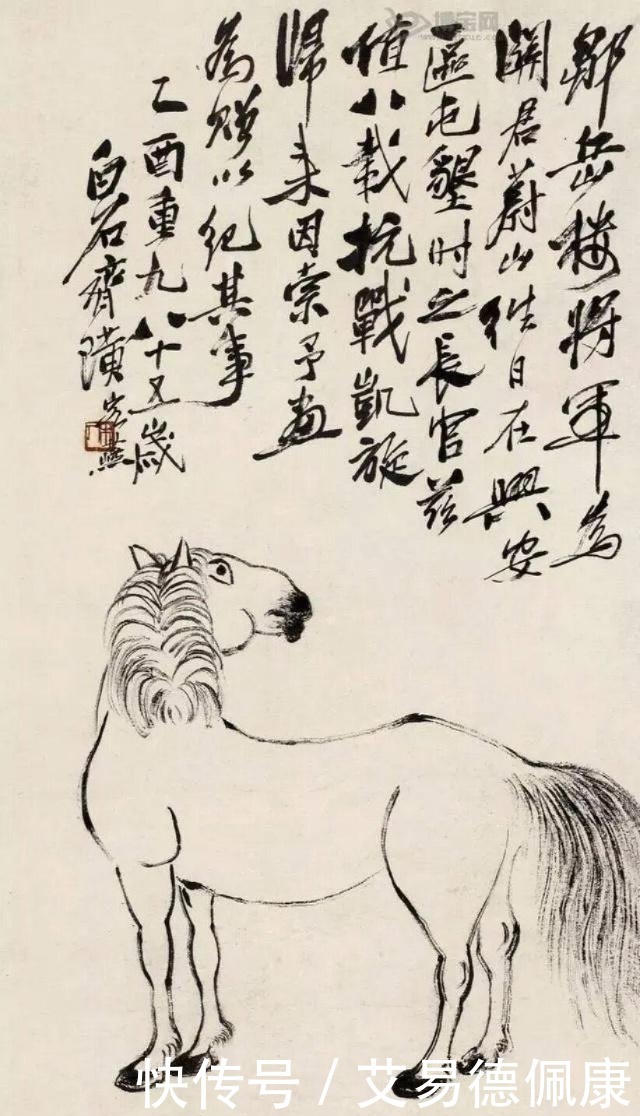 鄒岳樓将軍為
關君蔚山往日在興安
區屯墾時之長官兹
值八載抗戰凱旋
歸来因索予畫
為贈以纪其事
乙酉重九八十五歲
白石齊璜客燕
博宝网
快传号 / 艾易德佩康